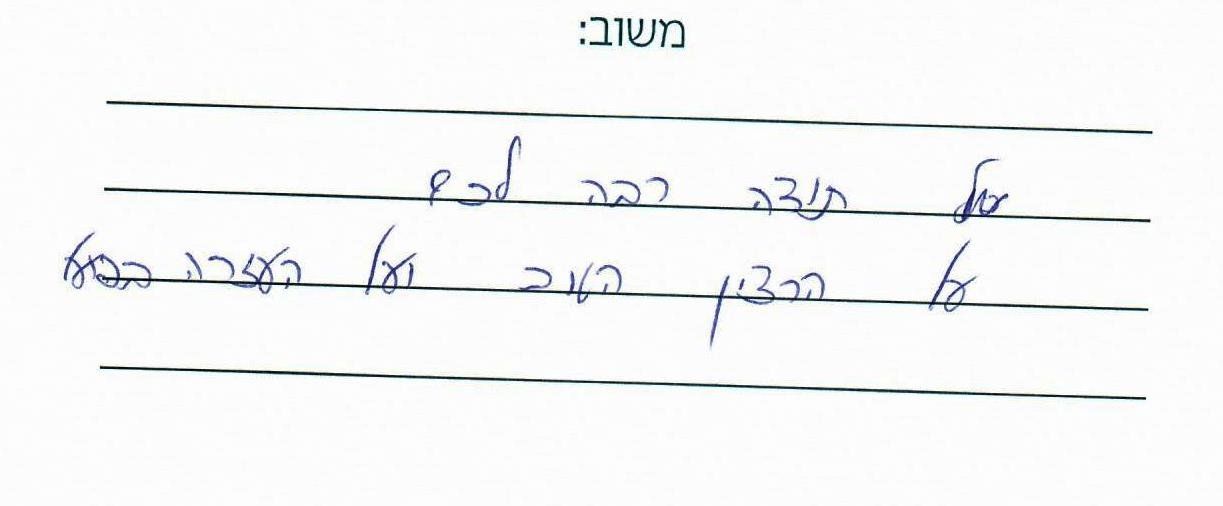 משוב:
תודה רבה לכם
על הרצון הטוב ועל העזרה בפועל